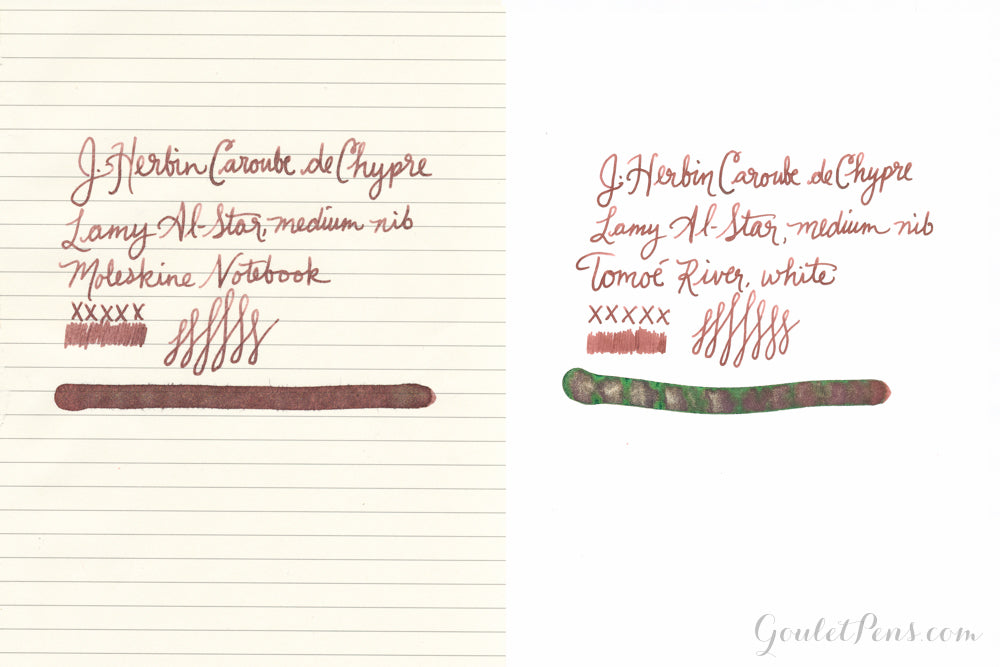 J. Herbin Caroube de Chypre
Lamy Al-Star, medium nib
Moleskine Notebook
xxxxx
J. Herbin Caroube de Chypre
Lamy Al-Star, medium nib
Tomoé River, white
xxxxx
GouletPens.com